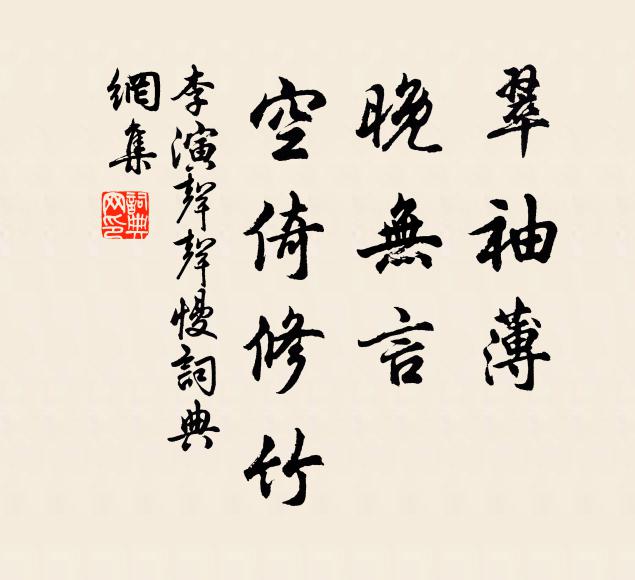 翠袖薄
晚無言
空倚修竹
李演聲聲慢詞典
網集
詞典
网印